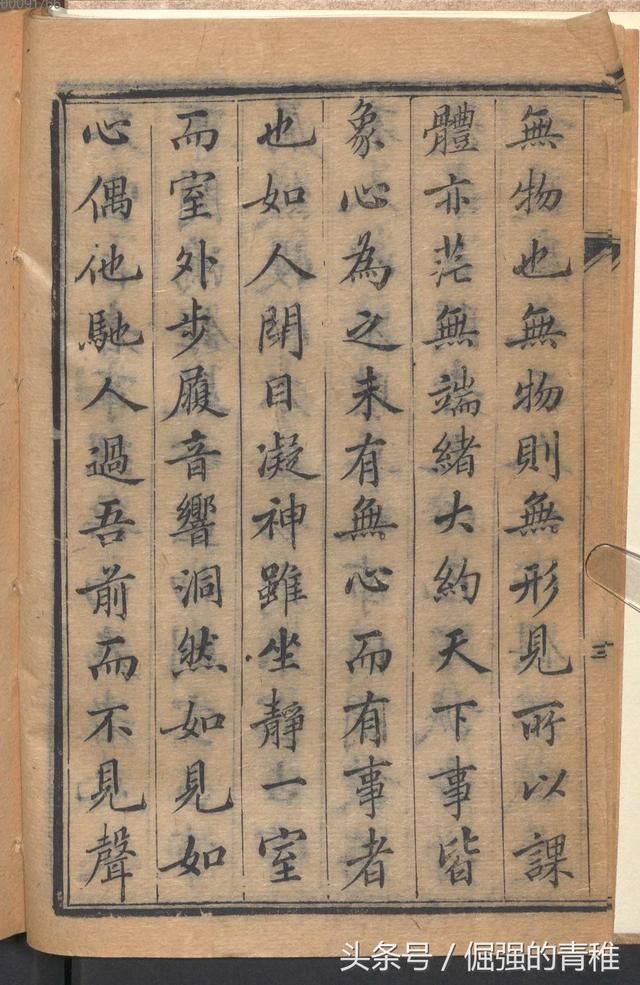 無物也無物則無形見所以課
體亦茫無端緒大約天下事皆
象心為之未有無心而有事者
也如人閉目凝神雖坐靜一室
而室外步履音響洞然如見如
心偶他馳人過吾前而不見聲
三
頭条号 / 倔强的青稚